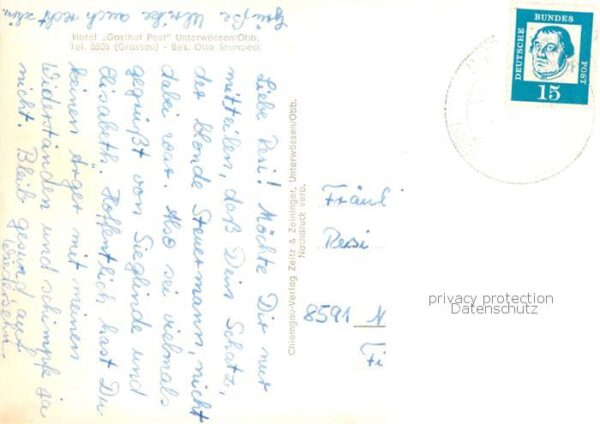 Grüße Ulrike auch recht schön.
Hotel „Gasthof Post" Unterwössen/Obb.
Tel. 8305 (Grassau) - Bes. Otto Stumbeck
Liebe Resi! Möchte Dir nur
mitteilen, daß Dein Schatz,
der blonde Steuermann, nicht
dabei war. Also sei vielmals
gegrüßt von Sieglinde und
Elisabeth. Hoffentlich hast Du
keinen Ärger mit meinen
Widerständen und schimpfe ja
nicht. Bleib gesund, auf
Wiedersehn.
Chiemgau-Verlag Zeitz & Zeininger, Unterwössen/Obb.
Nachdruck verb.
DEUTSCHE
BUNDES
POST
15
Fräul
Resi
8591 N
Fi
privacy protection
Datenschutz